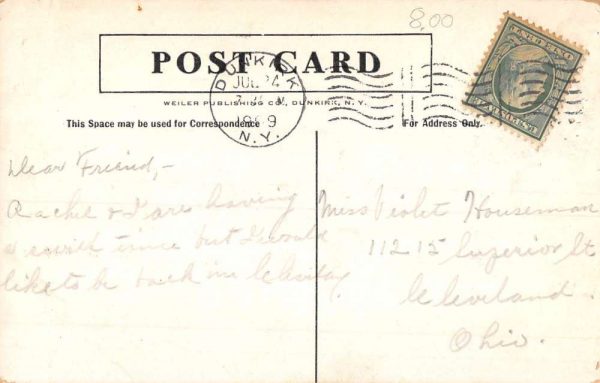 8,00
POST CARD
DUNKIRK
JUL 24
1909
N.Y.
WEILER PUBLISHING CO., DUNKIRK, N.Y.
This Space may be used for Correspondence
For Address Only.
Dear Friend,-
Rachel & I are having
a swell time but I would
like to be back in
Miss Violet Houseman
11215 Superior St
Cleveland.
Ohio.